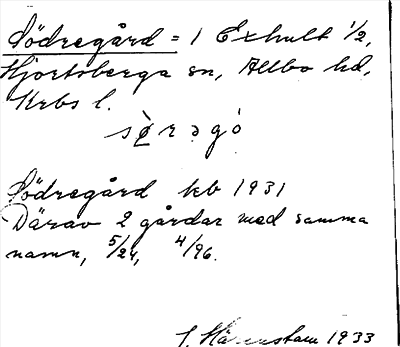 Södregård = 1 Exhult 1/2,
Hjortsberga sn, Allbo hd,
Krbs l.
Södregård kb 1931
Därav 2 gårdar med samma
namn, 5/24, 4/96.
1933